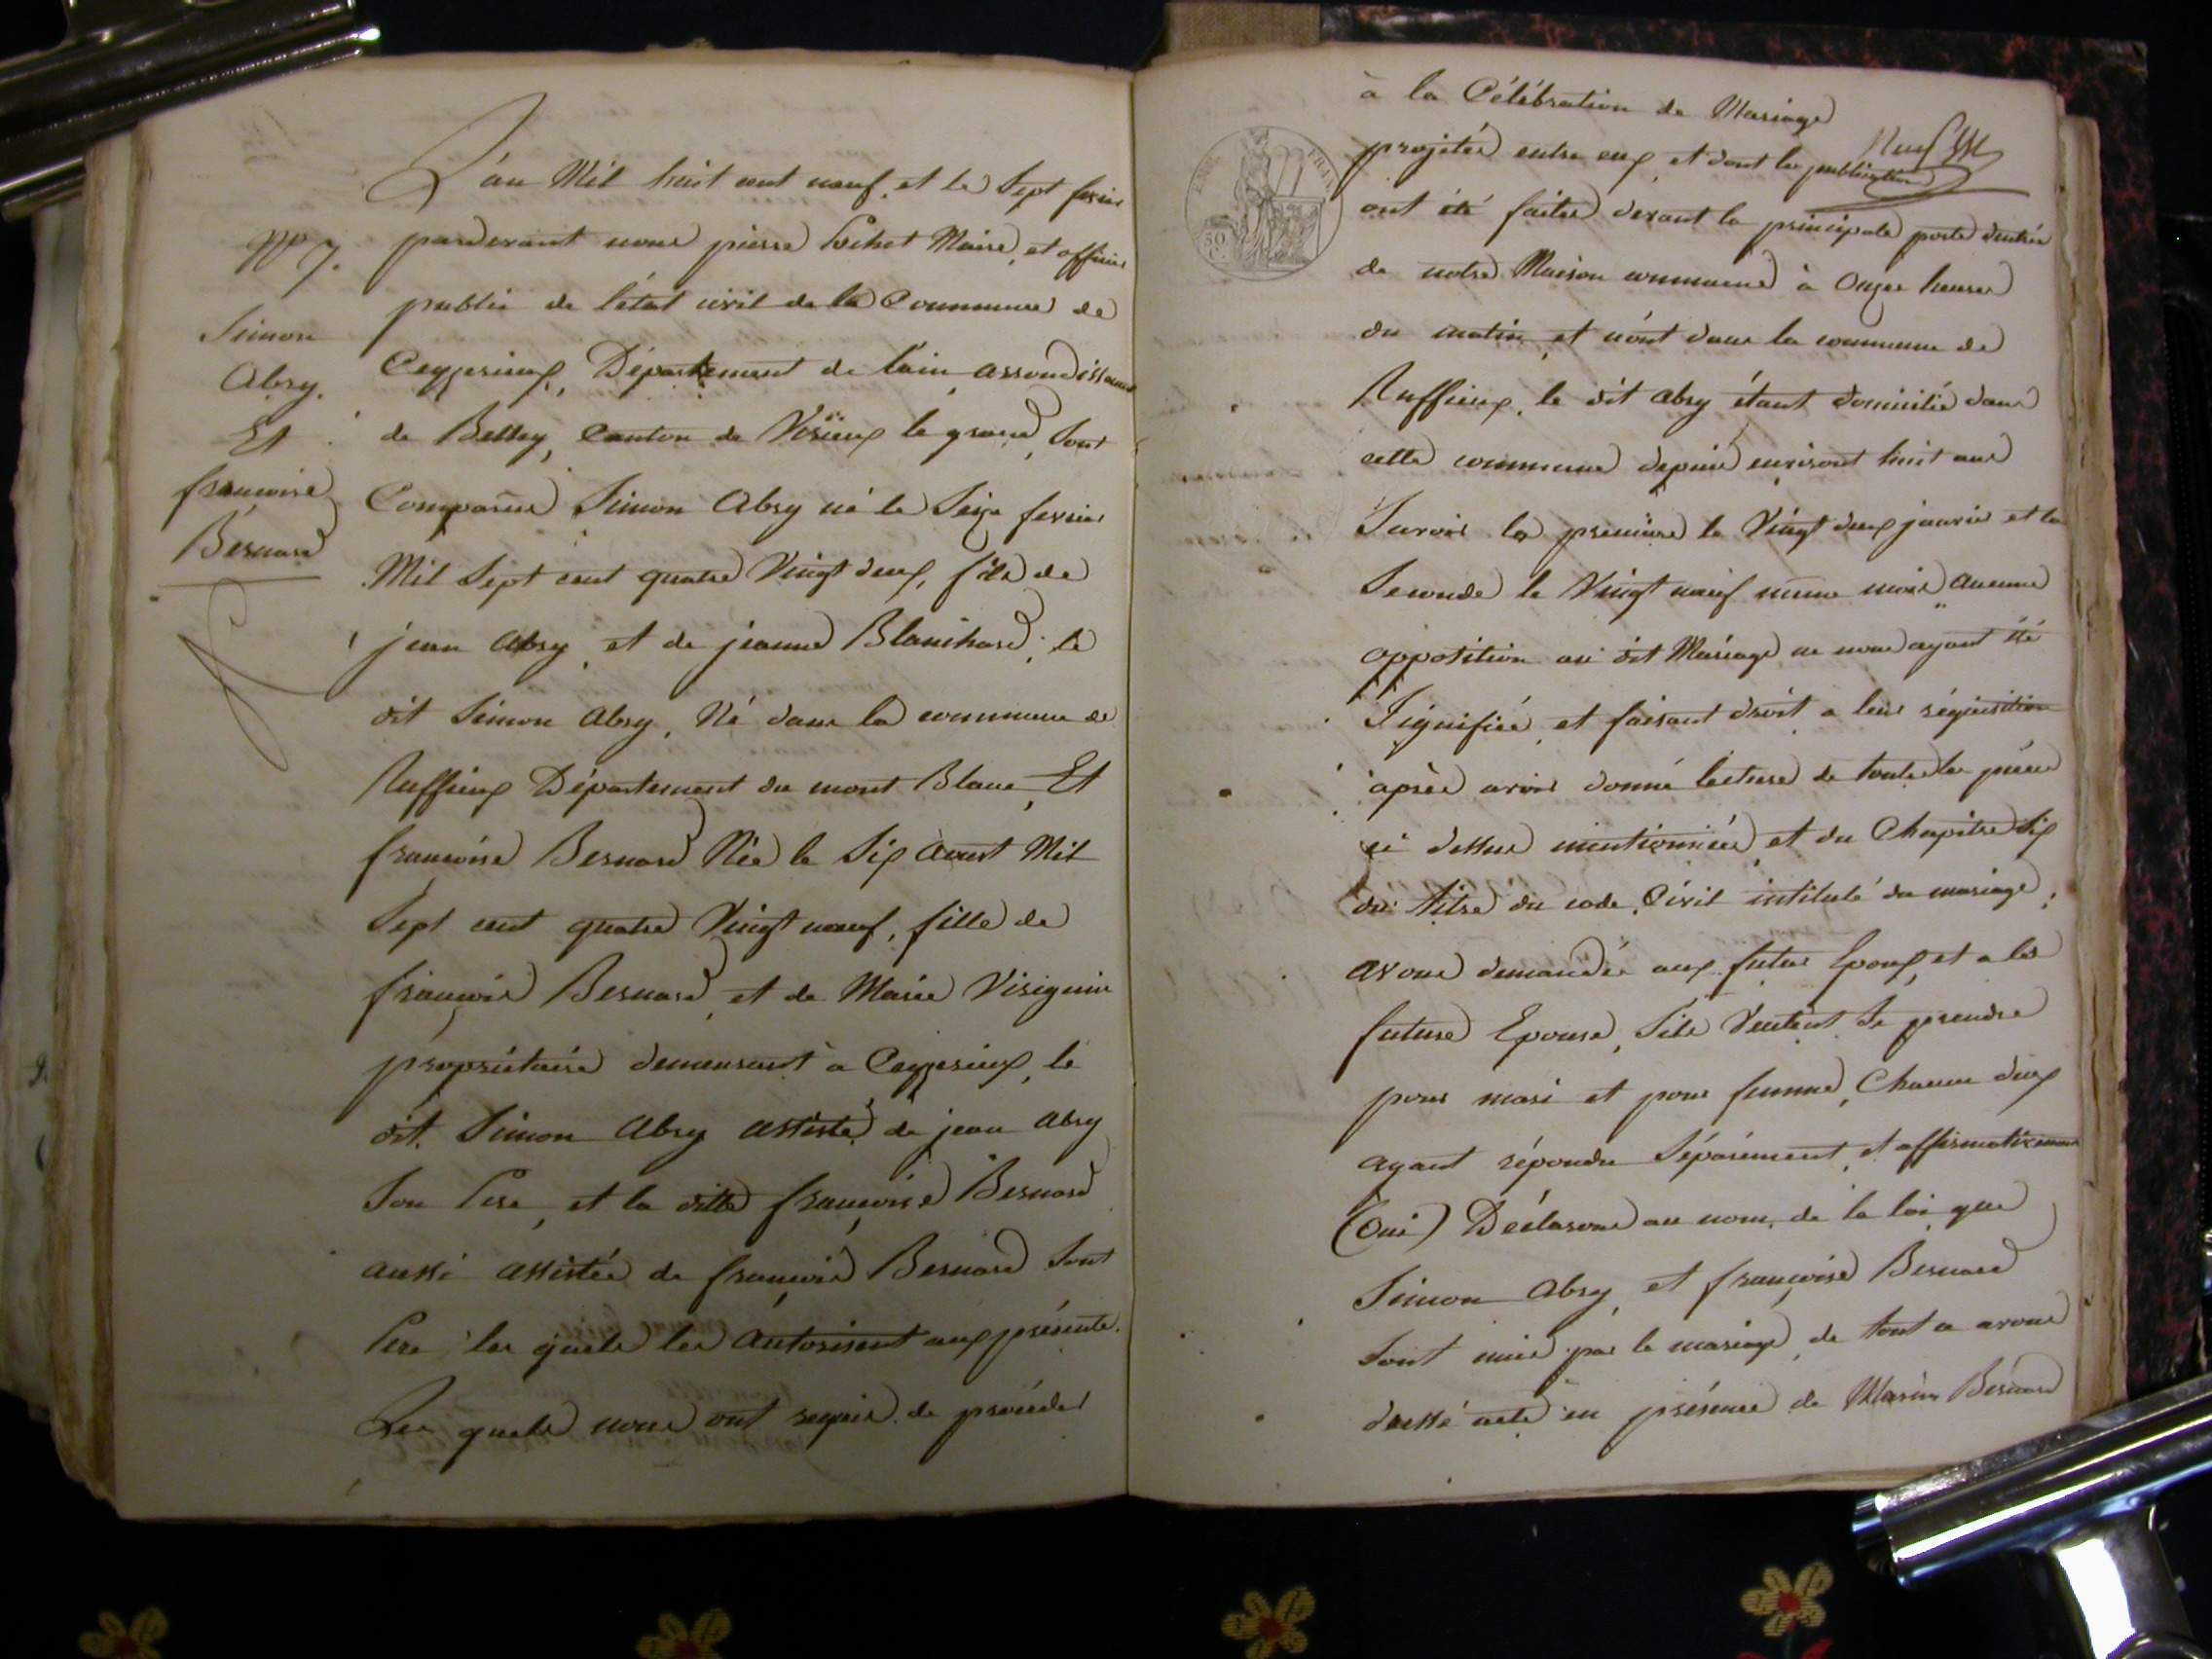 L'an Mil huit cent neuf, et le Sept fevrier
N.º 7.
pardevant nous pierre Pochet Maire, et officier
public de l'état civil de la Commune de
Simon
Abry.
Et
françoise
Bernard
Ceyzerieux, Département de l'ain, arrondissement
de Belley, Canton de Virieux le grand, sont
Comparus Simon Abry né le Seize fevrier
Mil Sept cent quatre Vingt deux, fils de
jean Abry, et de jeanne Blanchard, le
dit Simon Abry, Né dans la commune de
Ruffieux Département du mont Blanc, Et
françoise Bernard Née le Six Aoust Mil
Sept cent quatre Vingt neuf, fille de
françois Bernard, et de Marie
propriétaire demeurant à Ceyzerieux, le
dit Simon Abry assisté de jean Abry
Son Pere, et la ditte françoise Bernard
aussi assistée de françois Bernard Sont
Pere les quels les Autorisent aux présente.
Les quels nous ont requis de procéder
à la Célébration de Mariage
projetté entre eux, et dont les publications
ont été faites devant la principale porte d'entrée
EMP. FRAN.
50
C.
de notre Maison commune à Onze heures
du matin, et n'ont dans la commune de
Ruffieux, le dit Abry étant domicilié dans
cette commune depuis environt huit ans
Savoir la premiere le Vingt deux janvier et la
Seconde le Vingt neuf même mois aucune
opposition au dit Mariage ne nous ayant été
Signifiée, et faisant droit a leur réquisition
après avoir donné lecture de toutes les pièces
ci dessus mentionnées, et du Chapitre Six
du titre du code Civil intitulé du mariage,
avons demandée aux futur Epoux, et a la
future Epouse, S'ils Veulent Se prendre
pour mari et pour femme, Chacun deux
ayant répondu Séparément, et affirmativement
(Oui) Déclarons au nom de la loi que
Simon Abry, et françoise Bernard
Sont unis par le mariage, de tout a avons
dressé acte en présence de Marin Bernard